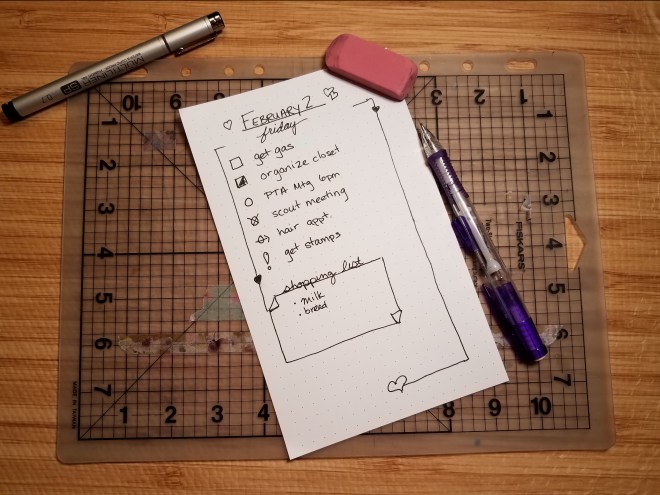 FEBRUARY 2
friday
get gas
organize closet
PTA Mtg 6pm
scout meeting
hair appt.
! get stamps
shopping list
· milk
· bread
FISKARS
MADE IN TAIWAN
10
3
2
1
1
2
3
4
5
6
7
1
2
3
4
5
6
7
1
2
3
4
8
9
10